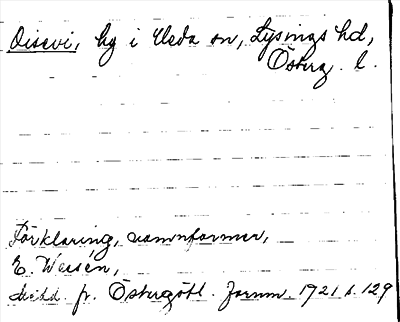 Disevi, hg i Heda sn, Lysings hd,
Österg. l.
Förklaring, namnformer,
E. Wessén,
Medd. fr. Östergötl. Fornm. 1921 s. 129